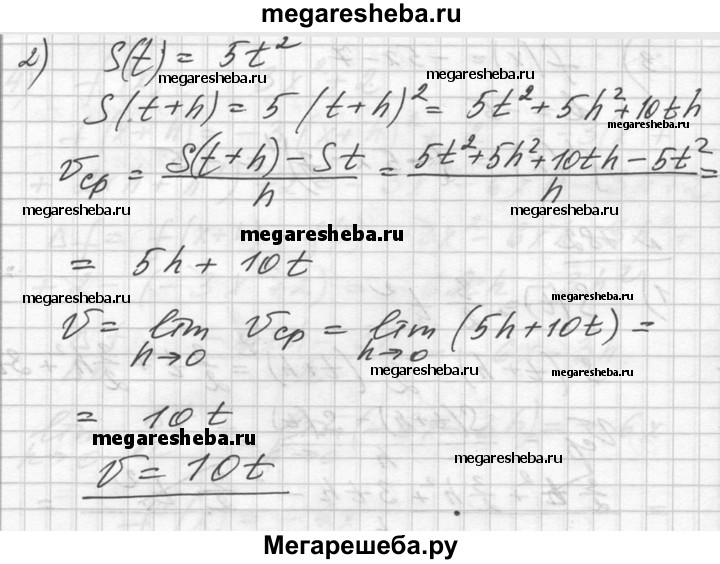 megaresheba.ru
2) S(t) = 5t²
megaresheba.ru megaresheba.ru
S(t+h) = 5(t+h)² = 5t²+5h²+10th
megaresheba.ru
Vср = (S(t+h) - St)/h = (5t²+5h²+10th-5t²)/h =
megaresheba.ru megaresheba.ru
megaresheba.ru
= 5h + 10t
megaresheba.ru megaresheba.ru
V = lim h→0 Vср = lim h→0 (5h+10t) =
megaresheba.ru megaresheba.ru
= 10t
megaresheba.ru
V = 10t
megaresheba.ru
Мегарешеба.ру